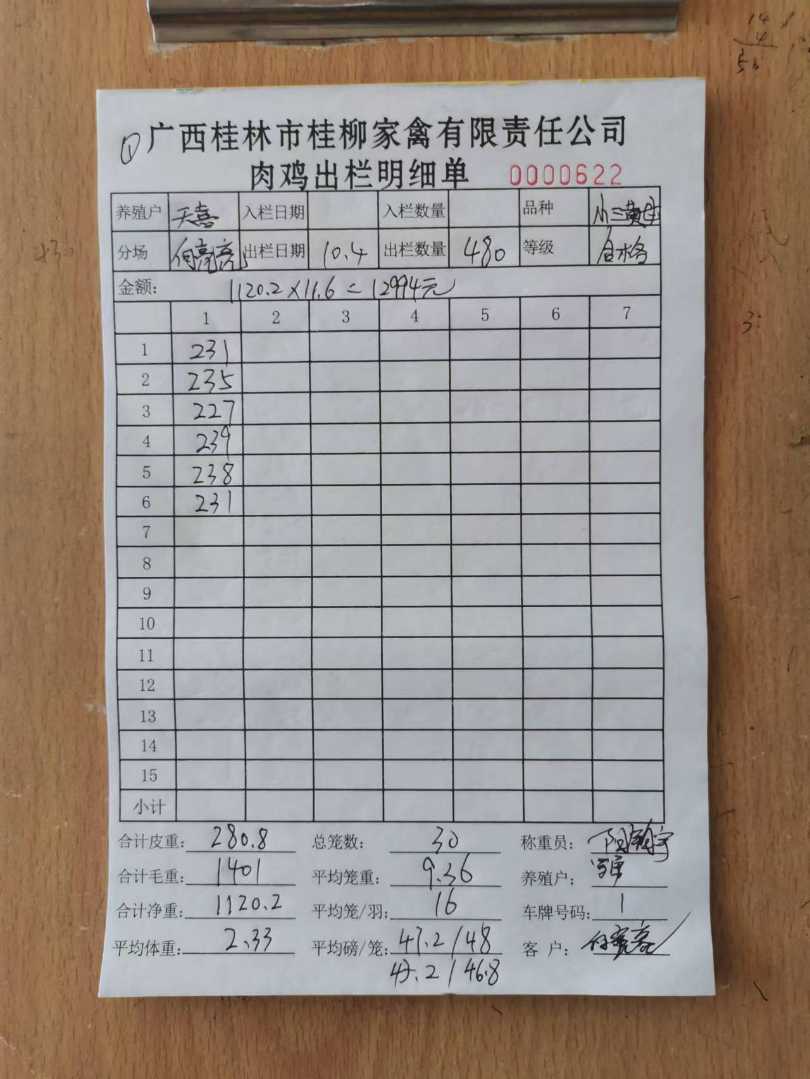 ① 广西桂林市桂柳家禽有限责任公司
肉鸡出栏明细单 0000622
养殖户 天喜 入栏日期 入栏数量 品种 小三黄
分场 何亮亮 出栏日期 10.4 出栏数量 480 等级 合格
金额: 1120.2×11.6=12994元
1 2 3 4 5 6 7
1 231
2 235
3 227
4 239
5 238
6 231
7
8
9
10
11
12
13
14
15
小计
合计皮重: 280.8 总笼数: 30 称重员:
合计毛重: 1401 平均笼重: 9.36 养殖户:
合计净重: 1120.2 平均笼/羽: 16 车牌号码: 1
平均体重: 2.33 平均磅/笼: 47.2/48 客户:
47.2/46.8
14
4
56